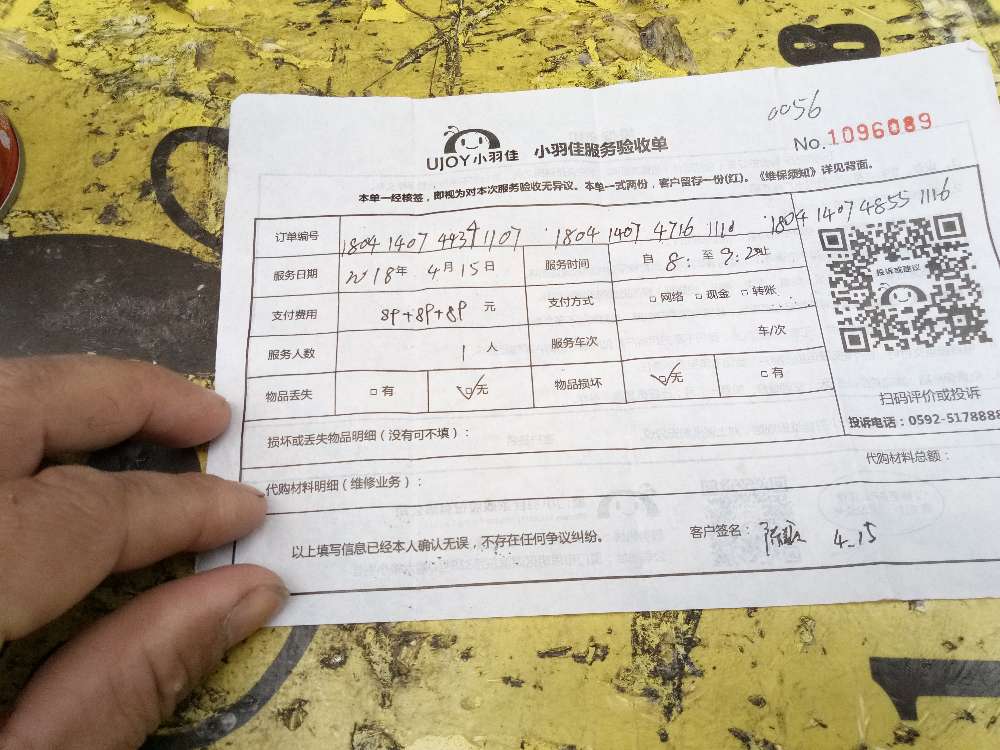 0056
UJOY小羽佳 小羽佳服务验收单 No.1096089
本单一经核签，即视为对本次服务验收无异议。本单一式两份，客户留存一份(红)。《维保须知》详见背面。
订单编号 1804 1407 4434 1107 1804 1407 4716 1110 1804 1407 4855 1116
服务日期 2018年 4月15日 服务时间 自 8: 至 9:20止
投诉或建议
支付费用 89+89+89 元 支付方式 □网络 □现金 □转账
服务人数 1人 服务车次 车/次
物品丢失 □有 ☑无 物品损坏 ☑无 □有
扫码评价或投诉
投诉电话：0592-5178888
损坏或丢失物品明细（没有可不填）：
代购材料明细（维修业务）： 代购材料总额：
以上填写信息已经本人确认无误，不存在任何争议纠纷。 客户签名： 4.15
8
1